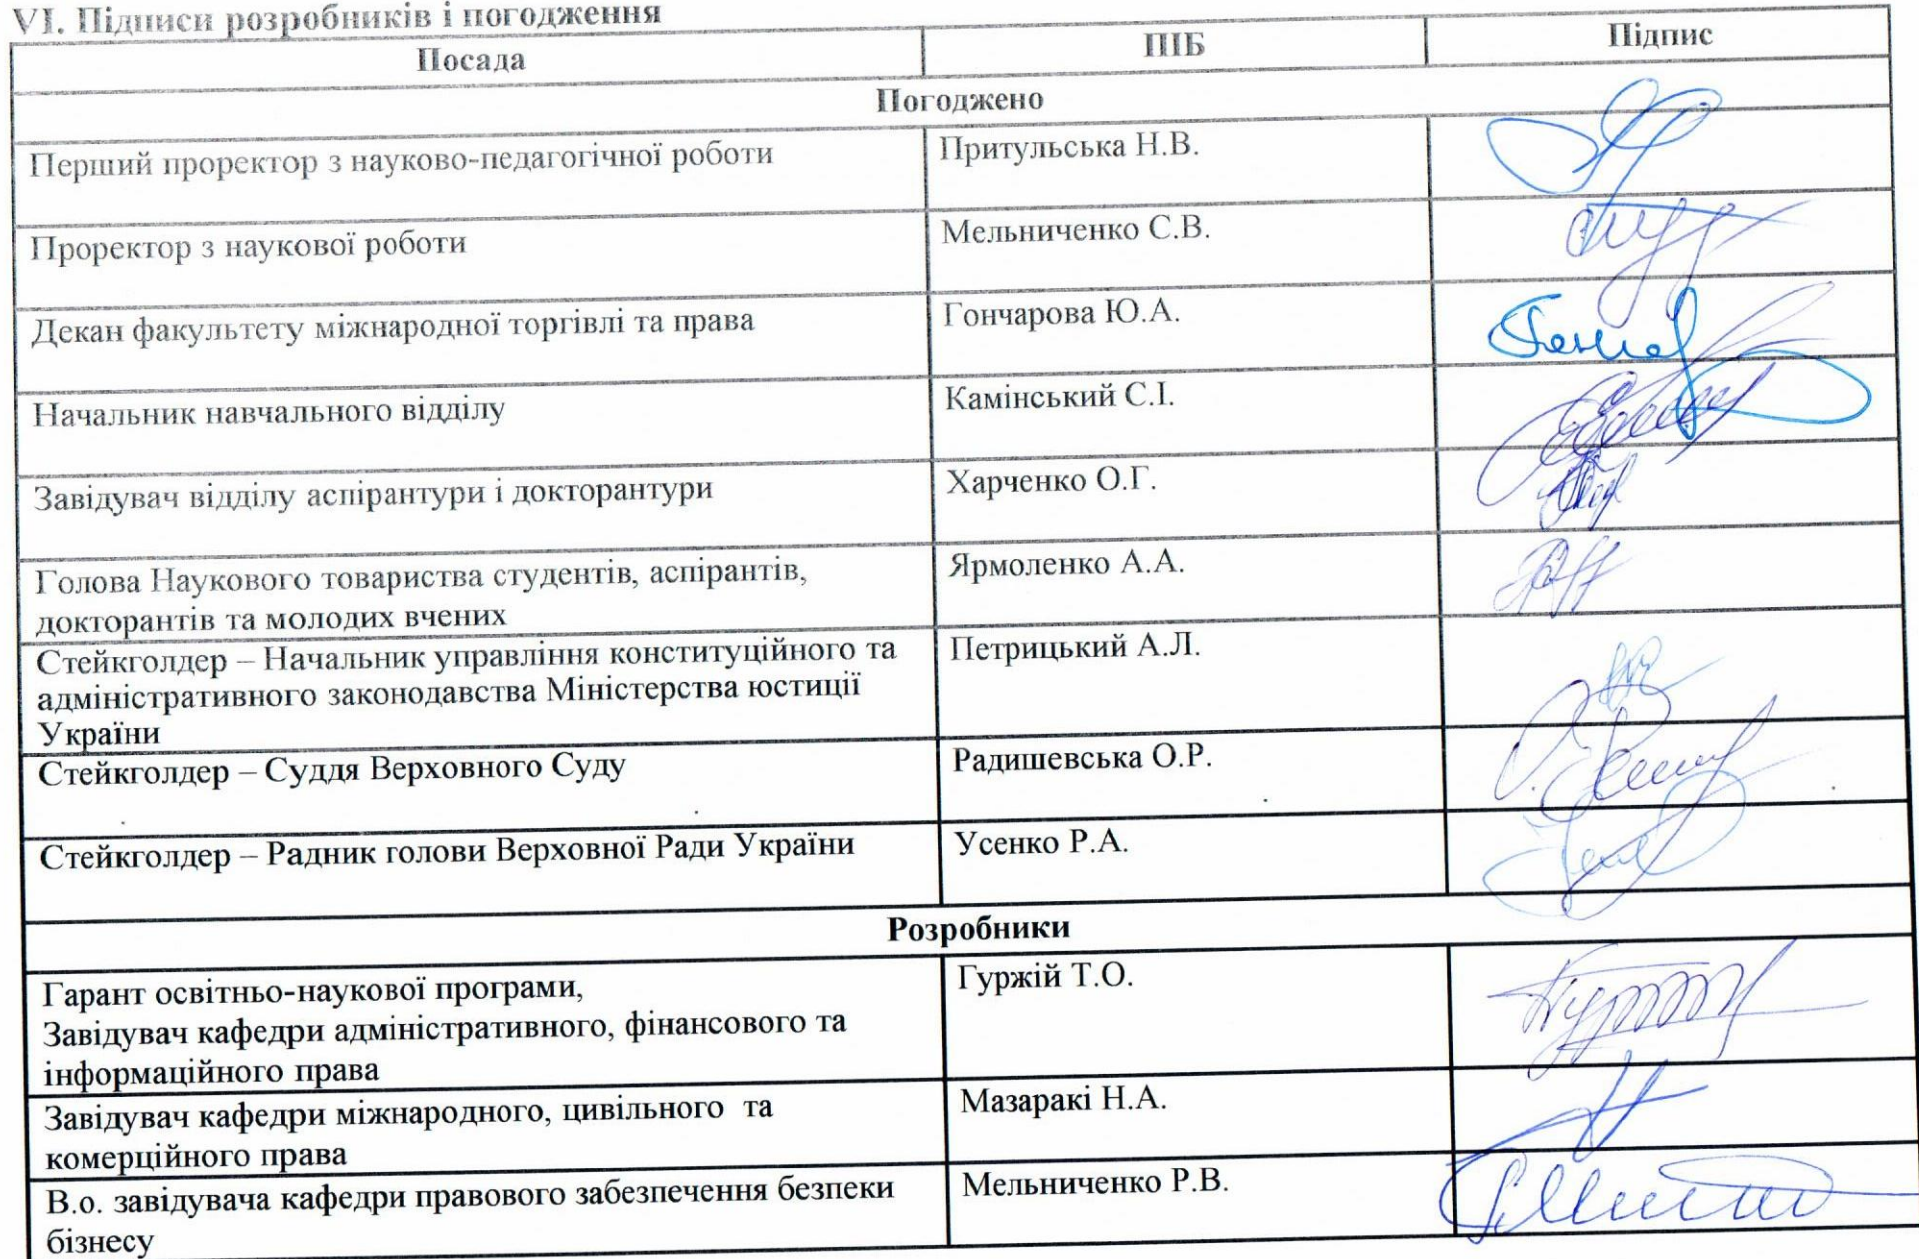 VI. Підписи розробників і погодження
Посада ПІБ Підпис
Погоджено
Перший проректор з науково-педагогічної роботи Притульська Н.В.
Проректор з наукової роботи Мельниченко С.В.
Декан факультету міжнародної торгівлі та права Гончарова Ю.А.
Начальник навчального відділу Камінський С.І.
Завідувач відділу аспірантури і докторантури Харченко О.Г.
Голова Наукового товариства студентів, аспірантів, Ярмоленко А.А.
докторантів та молодих вчених
Стейкголдер – Начальник управління конституційного та Петрицький А.Л.
адміністративного законодавства Міністерства юстиції
України
Стейкголдер – Суддя Верховного Суду Радишевська О.Р.
Стейкголдер – Радник голови Верховної Ради України Усенко Р.А.
Розробники
Гарант освітньо-наукової програми, Гуржій Т.О.
Завідувач кафедри адміністративного, фінансового та
інформаційного права
Завідувач кафедри міжнародного, цивільного та Мазаракі Н.А.
комерційного права
В.о. завідувача кафедри правового забезпечення безпеки Мельниченко Р.В.
бізнесу